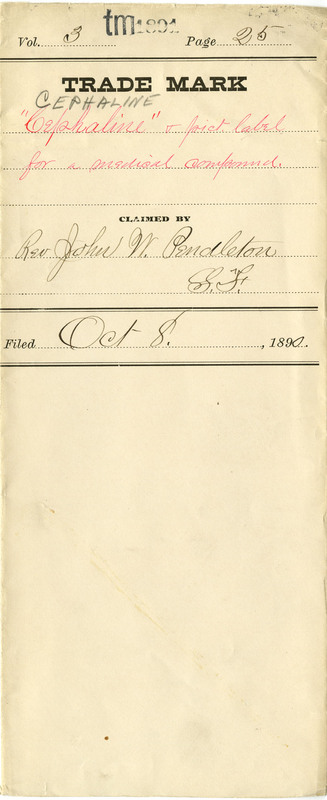 tm1891
Vol. 3 Page 25
TRADE MARK
CEPHALINE
"Cephaline" & pict label
for a medical compound.
CLAIMED BY
Rev John W. Pendleton
S.F.
Filed Oct 8. , 1890.